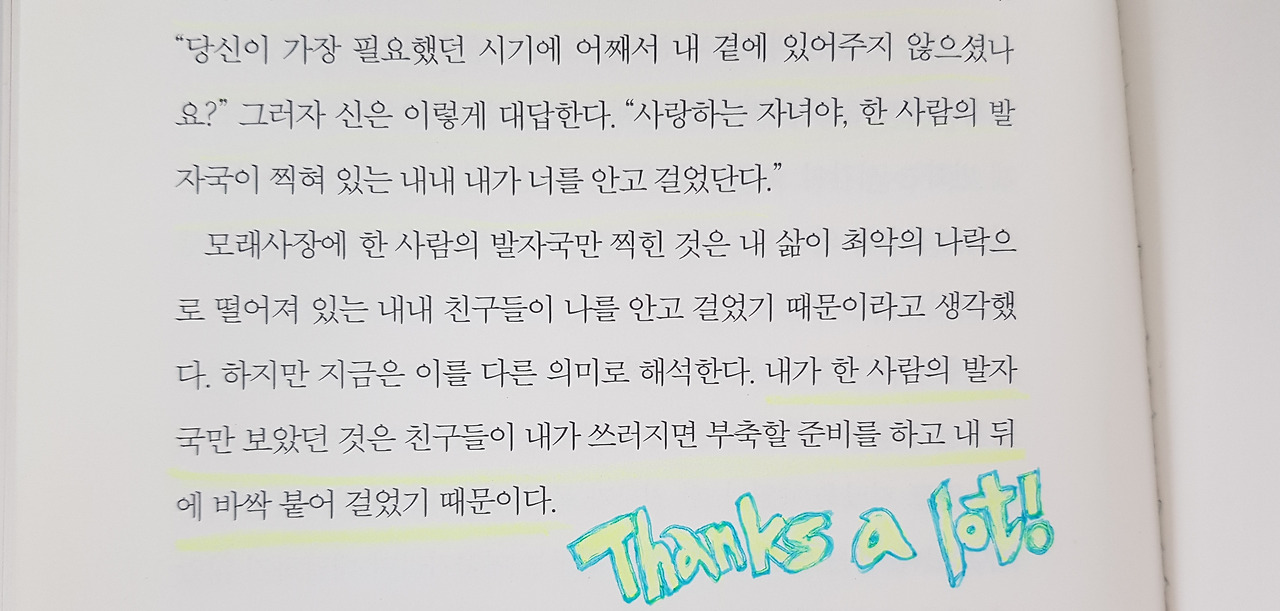 “당신이 가장 필요했던 시기에 어째서 내 곁에 있어주지 않으셨나
요?” 그러자 신은 이렇게 대답한다. “사랑하는 자녀야, 한 사람의 발
자국이 찍혀 있는 내내 내가 너를 안고 걸었단다.”
모래사장에 한 사람의 발자국만 찍힌 것은 내 삶이 최악의 나락으
로 떨어져 있는 내내 친구들이 나를 안고 걸었기 때문이라고 생각했
다. 하지만 지금은 이를 다른 의미로 해석한다. 내가 한 사람의 발자
국만 보았던 것은 친구들이 내가 쓰러지면 부축할 준비를 하고 내 뒤
에 바싹 붙어 걸었기 때문이다.
Thanks a lot!